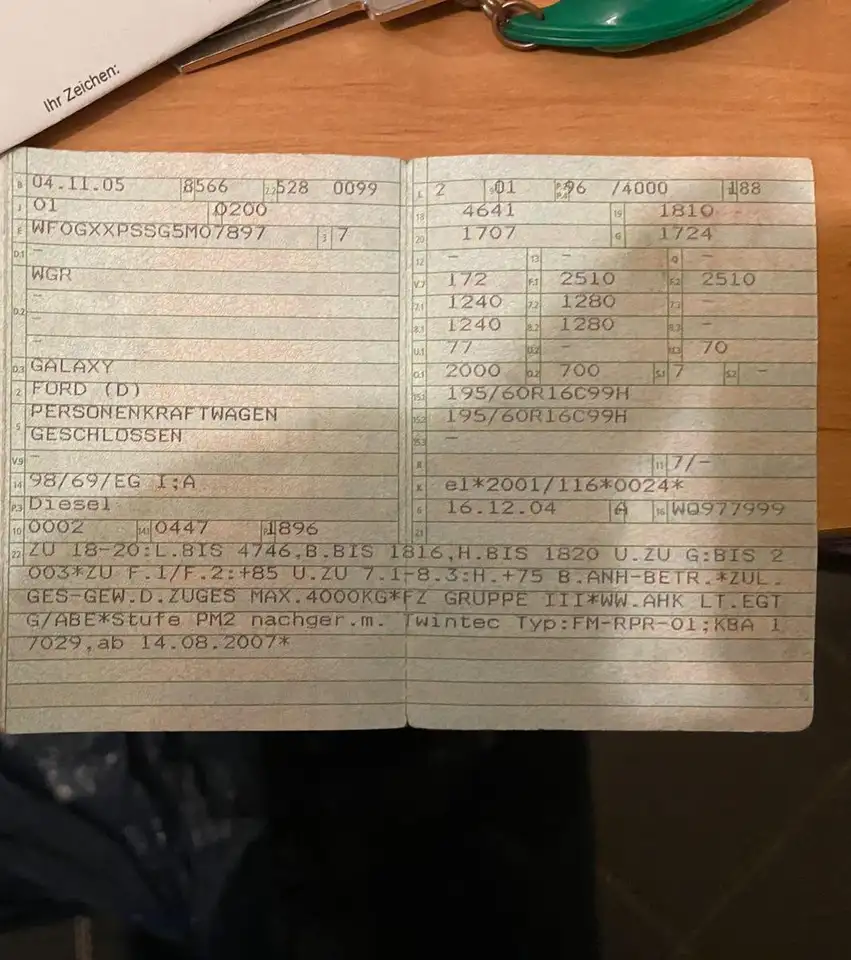 Ihr Zeichen:
B 04.11.05 8566 2.2 528 0099
J 01 4 0200
E WF0GXXPSSG5M07897 3 7
D.1 -
WGR
-
D.2 -
-
D.3 GALAXY
2 FORD (D)
5 PERSONENKRAFTWAGEN
GESCHLOSSEN
V.9 -
14 98/69/EG I;A
P.3 Diesel
10 0002 14.1 0447 P.1 1896
L 2 9 01 P.2 P.4 96 /4000 T 188
18 4641 19 1810
20 1707 G 1724
12 - 13 - Q -
V.7 172 F.1 2510 F.2 2510
7.1 1240 7.2 1280 7.3 -
8.1 1240 8.2 1280 8.3 -
U.1 77 U.2 - U.3 70
O.1 2000 O.2 700 S.1 7 S.2 -
15.1 195/60R16C99H
15.2 195/60R16C99H
15.3 -
R 11 7/-
K e1*2001/116*0024*
6 16.12.04 17 A 16 WQ977999
21
22 ZU 18-20:L.BIS 4746,B.BIS 1816,H.BIS 1820 U.ZU G:BIS 2
003*ZU F.1/F.2:+85 U.ZU 7.1-8.3:H.+75 B.ANH-BETR.*ZUL.
GES-GEW.D.ZUGES MAX.4000KG*FZ GRUPPE III*WW.AHK LT.EGT
G/ABE*Stufe PM2 nachger.m. Twintec Typ:FM-RPR-01;KBA 1
7029,ab 14.08.2007*